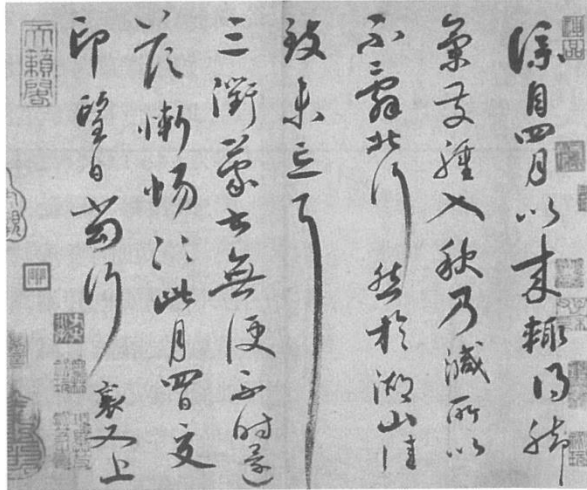 僕自四月以來輒得腳
氣發腫入秋乃減所以
不辭北行然於湖山佳
致未忘耳
三衢蒙書無便不時還
答慚惕〻此月四日交
印望日當行 襄又上
天籟閣